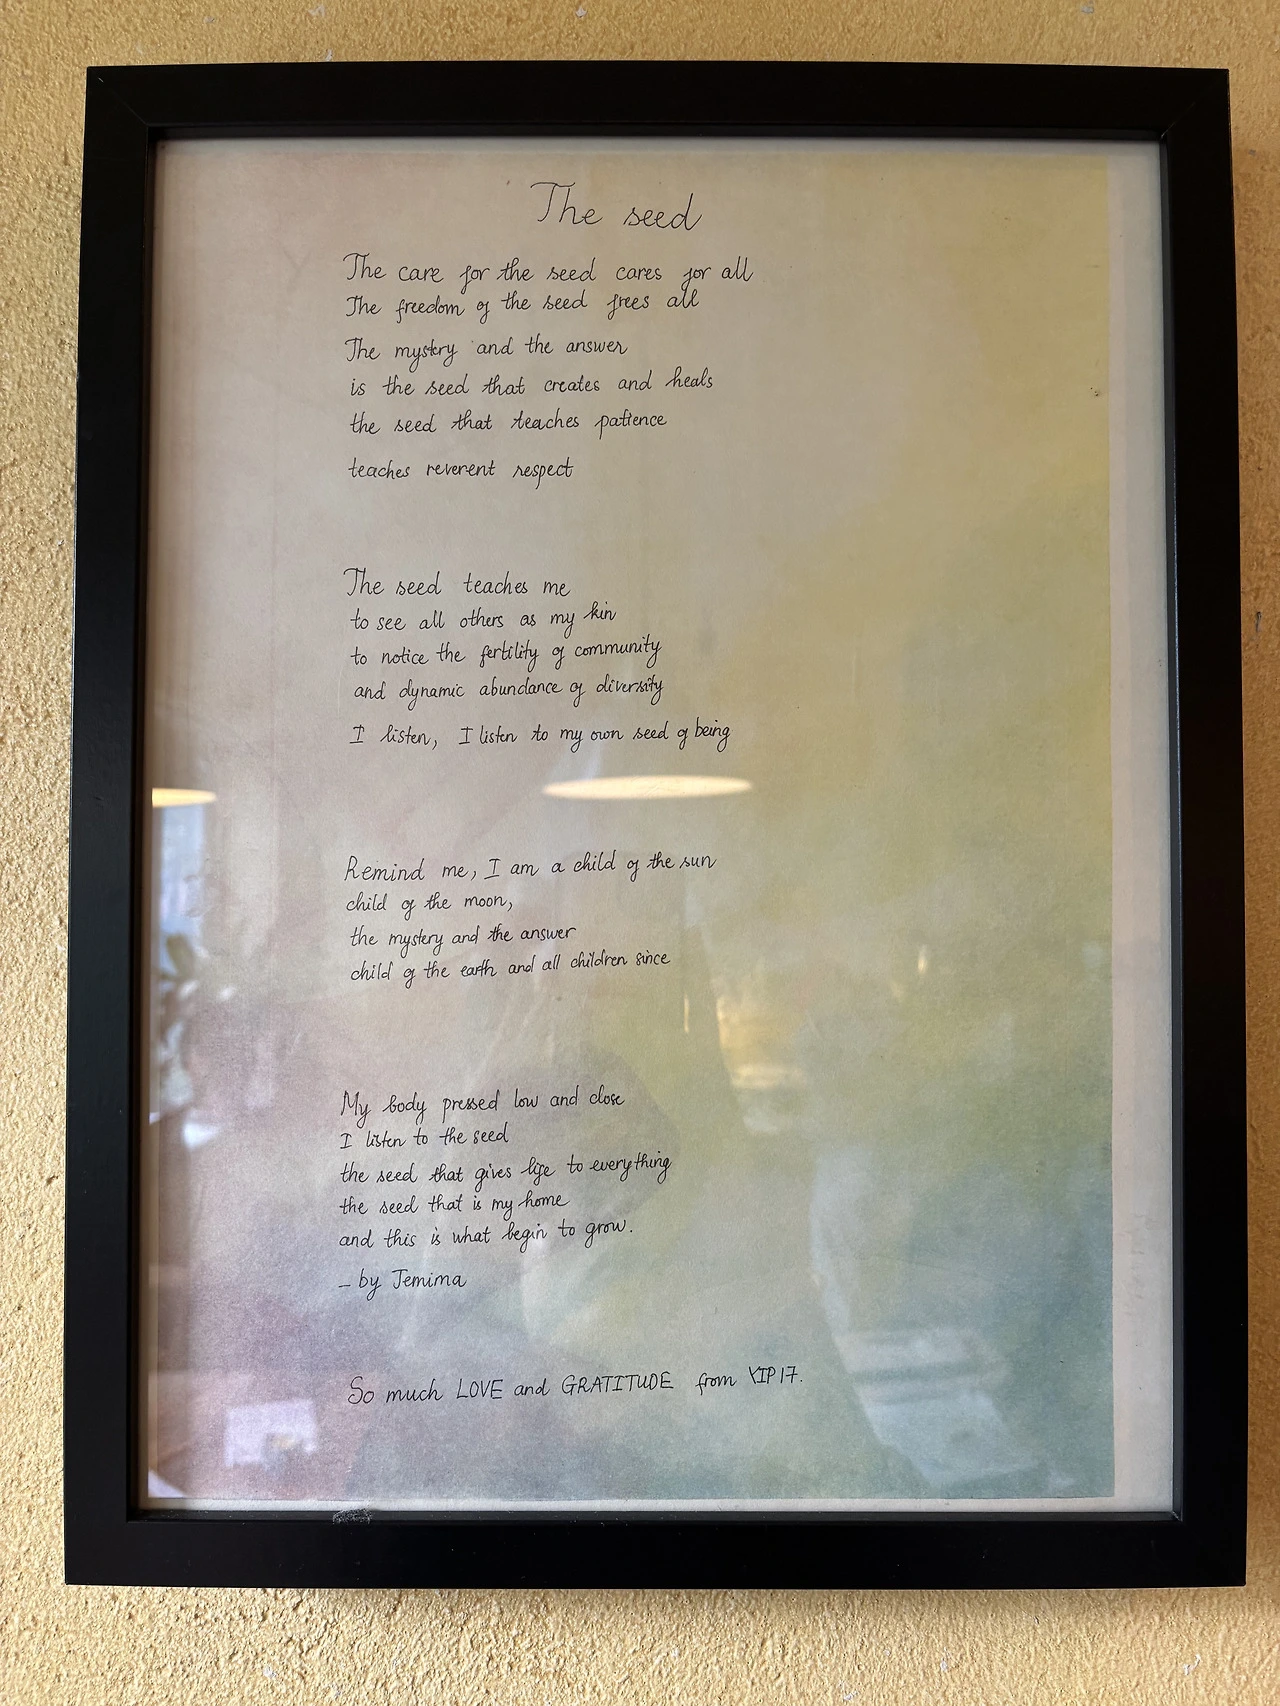 The seed
The care for the seed cares for all
The freedom of the seed frees all
The mystery and the answer
is the seed that creates and heals
the seed that teaches patience
teaches reverent respect
The seed teaches me
to see all others as my kin
to notice the fertility of community
and dynamic abundance of diversity
I listen, I listen to my own seed of being
Remind me, I am a child of the sun
child of the moon,
the mystery and the answer
child of the earth and all children since
My body pressed low and close
I listen to the seed
the seed that gives life to everything
the seed that is my home
and this is what begin to grow.
– by Jemima
So much LOVE and GRATITUDE from YIP17.